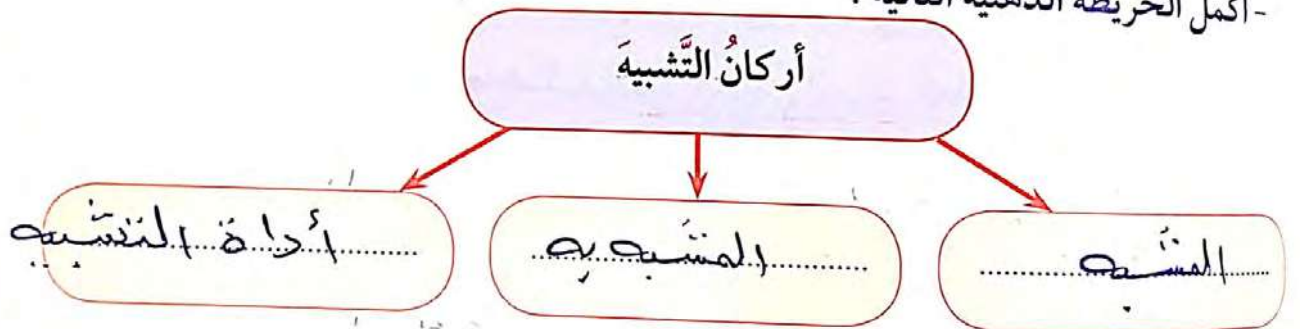 - أكمل الخريطة الذهنية التالية :
أركانُ التَّشبيهَ
المشبه
المشبه به
أداة التشبيه